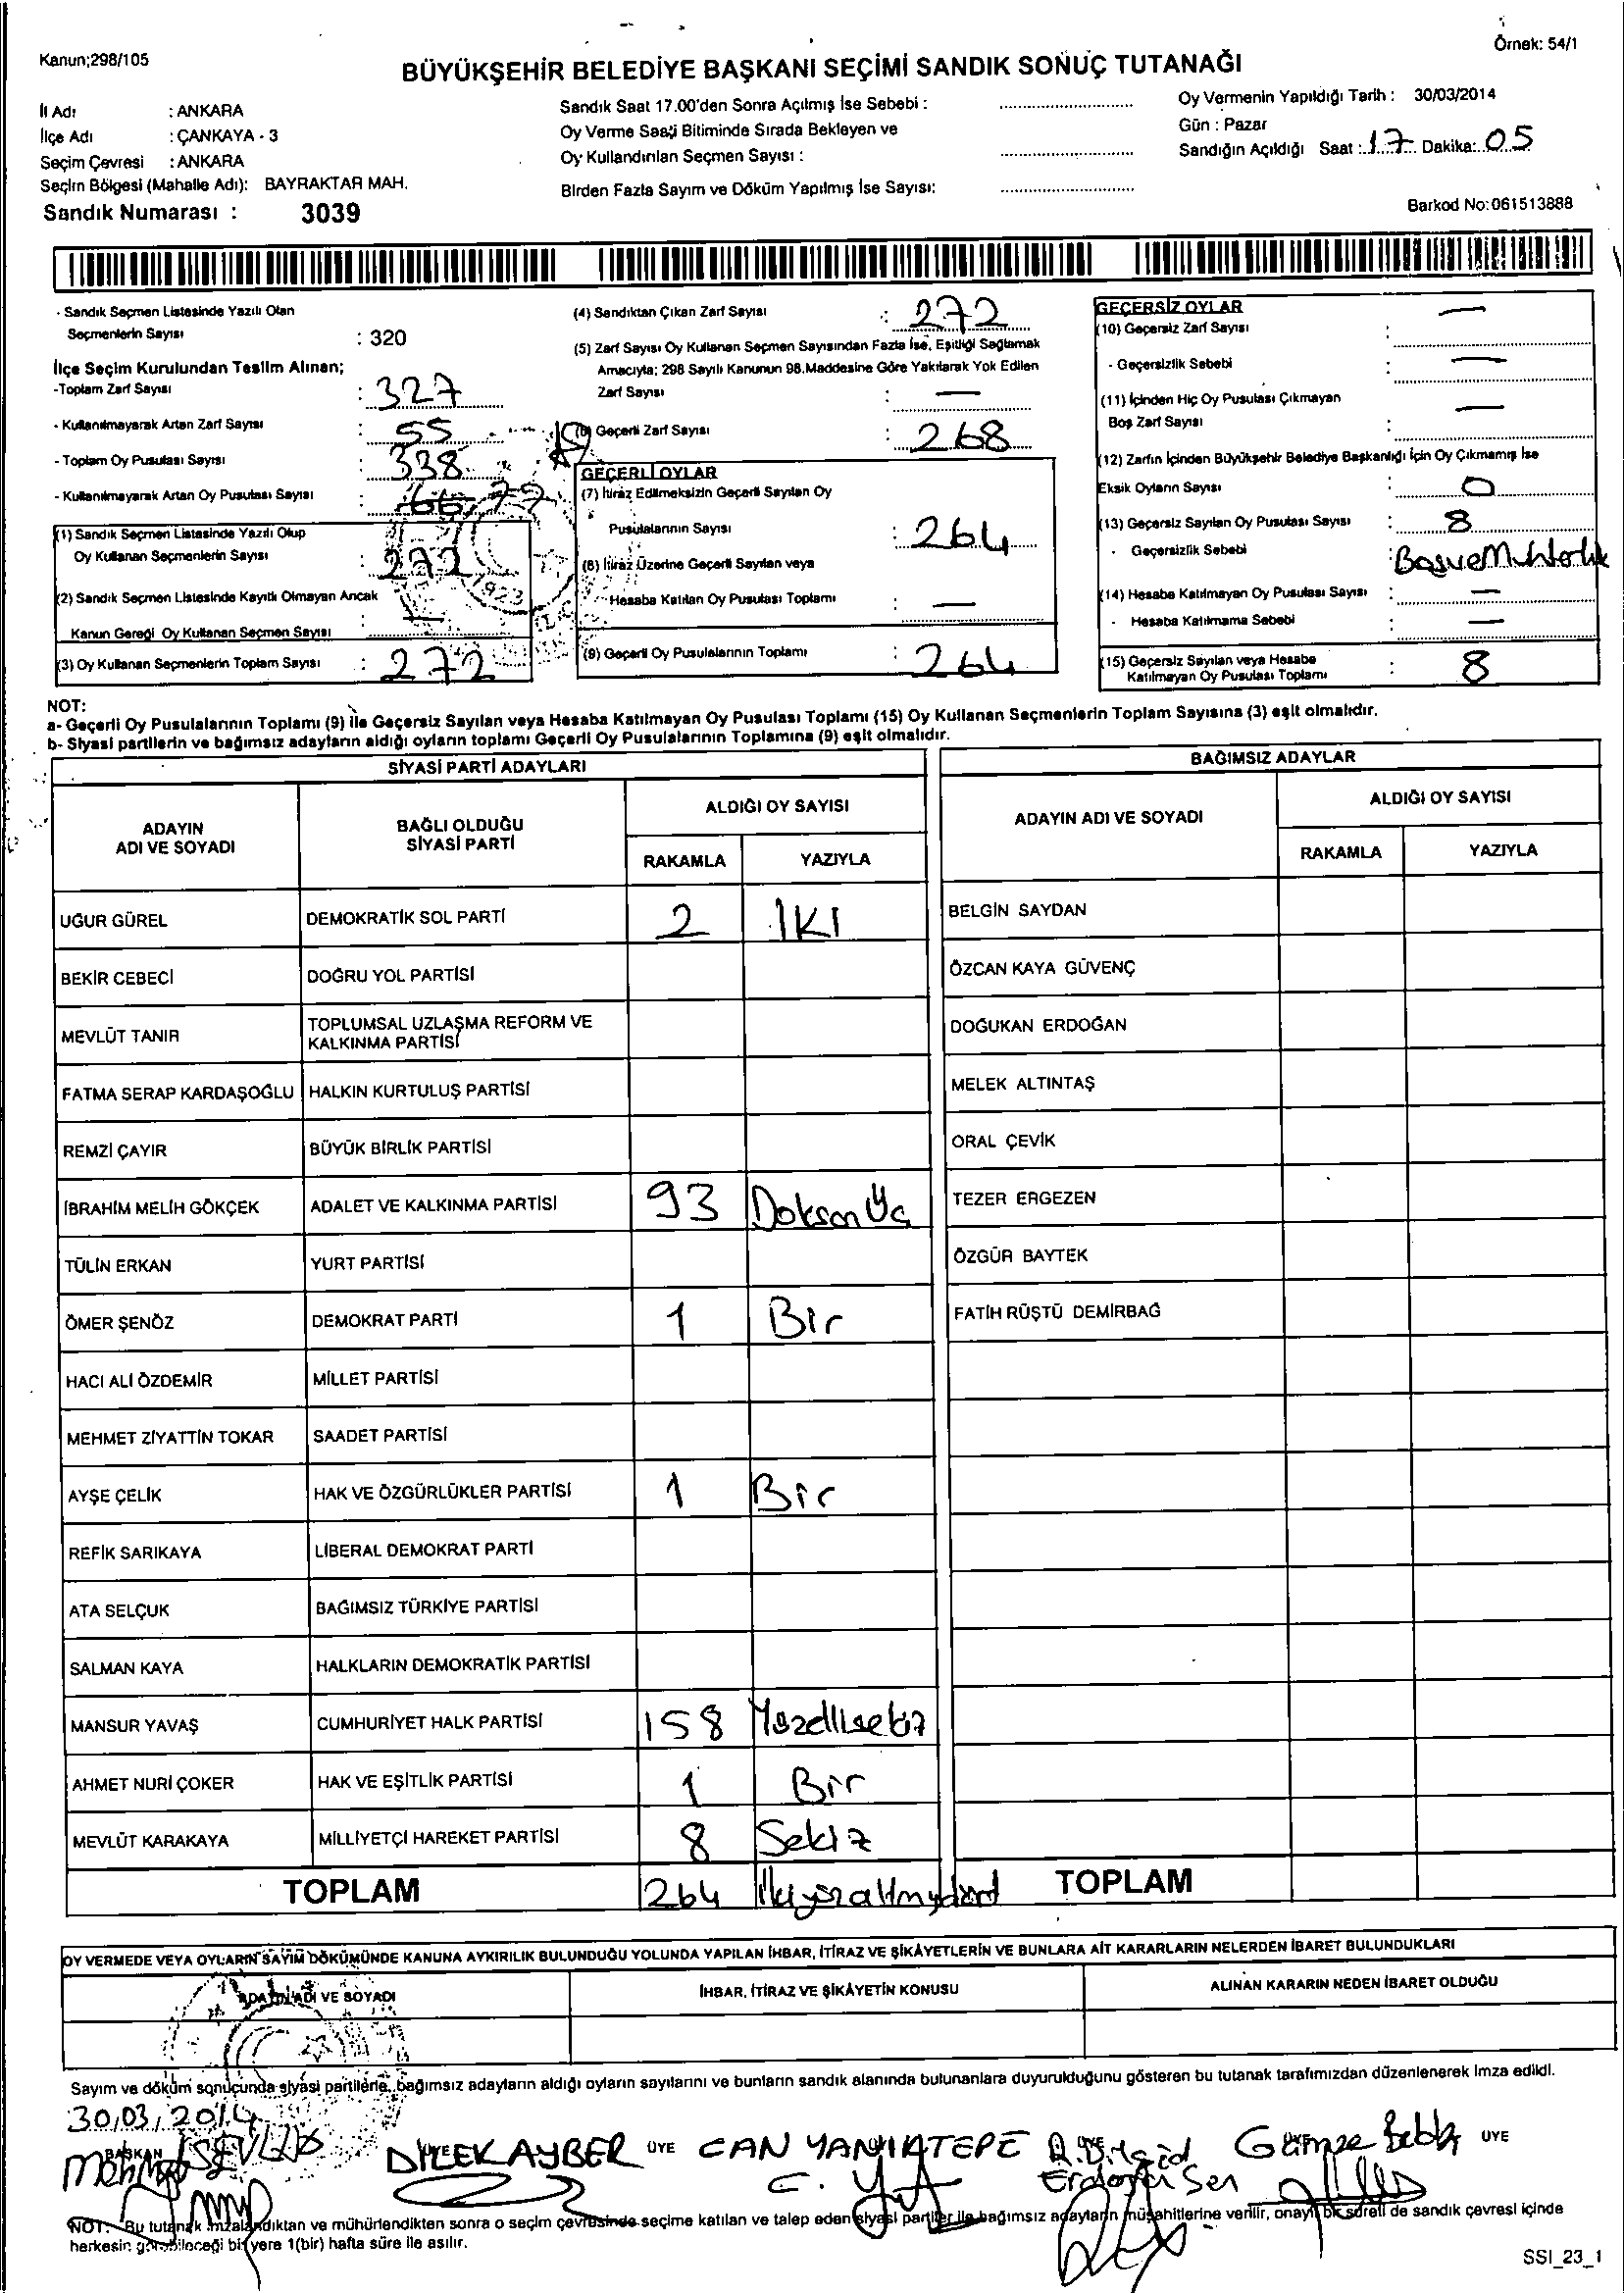 Kanun;298/105
Örnek: 54/1
BÜYÜKŞEHİR BELEDİYE BAŞKANI SEÇİMİ SANDIK SONUÇ TUTANAĞI
İl Adı : ANKARA
İlçe Adı : ÇANKAYA - 3
Seçim Çevresi : ANKARA
Seçim Bölgesi (Mahalle Adı): BAYRAKTAR MAH.
Sandık Numarası : 3039
Sandık Saat 17.00'den Sonra Açılmış İse Sebebi :
Oy Verme Saati Bitiminde Sırada Bekleyen ve
Oy Kullandırılan Seçmen Sayısı :
Birden Fazla Sayım ve Döküm Yapılmış İse Sayısı:
Oy Vermenin Yapıldığı Tarih : 30/03/2014
Gün : Pazar
Sandığın Açıldığı Saat : 17 Dakika: 05
Barkod No:061513888
- Sandık Seçmen Listesinde Yazılı Olan
Seçmenlerin Sayısı : 320
İlçe Seçim Kurulundan Teslim Alınan;
-Toplam Zarf Sayısı : 327
- Kullanılmayarak Artan Zarf Sayısı : 55
- Toplam Oy Pusulası Sayısı : 338
- Kullanılmayarak Artan Oy Pusulası Sayısı :
(1) Sandık Seçmen Listesinde Yazılı Olup
Oy Kullanan Seçmenlerin Sayısı : 272
(2) Sandık Seçmen Listesinde Kayıtlı Olmayan Ancak
Kanun Gereği Oy Kullanan Seçmen Sayısı : —
(3) Oy Kullanan Seçmenlerin Toplam Sayısı : 272
(4) Sandıktan Çıkan Zarf Sayısı : 272
(5) Zarf Sayısı Oy Kullanan Seçmen Sayısından Fazla İse, Eşitliği Sağlamak
Amacıyla; 298 Sayılı Kanunun 98.Maddesine Göre Yakılarak Yok Edilen
Zarf Sayısı : —
(6) Geçerli Zarf Sayısı : 268
GEÇERLİ OYLAR
(7) İtiraz Edilmeksizin Geçerli Sayılan Oy
Pusulalarının Sayısı : 264
(8) İtiraz Üzerine Geçerli Sayılan veya
Hesaba Katılan Oy Pusulası Toplamı : —
(9) Geçerli Oy Pusulalarının Toplamı : 264
GEÇERSİZ OYLAR
(10) Geçersiz Zarf Sayısı : —
- Geçersizlik Sebebi : —
(11) İçinden Hiç Oy Pusulası Çıkmayan
Boş Zarf Sayısı : —
(12) Zarfın İçinden Büyükşehir Belediye Başkanlığı İçin Oy Çıkmamış İse
Eksik Oyların Sayısı : 0
(13) Geçersiz Sayılan Oy Pusulası Sayısı : 8
- Geçersizlik Sebebi :
(14) Hesaba Katılmayan Oy Pusulası Sayısı : —
- Hesaba Katılmama Sebebi : —
(15) Geçersiz Sayılan veya Hesaba
Katılmayan Oy Pusulası Toplamı : 8
NOT:
a- Geçerli Oy Pusulalarının Toplamı (9) ile Geçersiz Sayılan veya Hesaba Katılmayan Oy Pusulası Toplamı (15) Oy Kullanan Seçmenlerin Toplam Sayısına (3) eşit olmalıdır.
b- Siyasi partilerin ve bağımsız adayların aldığı oyların toplamı Geçerli Oy Pusulalarının Toplamına (9) eşit olmalıdır.
SİYASİ PARTİ ADAYLARI
ADAYIN
ADI VE SOYADI
BAĞLI OLDUĞU
SİYASİ PARTİ
ALDIĞI OY SAYISI
RAKAMLA YAZIYLA
UĞUR GÜREL DEMOKRATİK SOL PARTİ 2 İKİ
BEKİR CEBECİ DOĞRU YOL PARTİSİ
MEVLÜT TANIR TOPLUMSAL UZLAŞMA REFORM VE
KALKINMA PARTİSİ
FATMA SERAP KARDAŞOĞLU HALKIN KURTULUŞ PARTİSİ
REMZİ ÇAYIR BÜYÜK BİRLİK PARTİSİ
İBRAHİM MELİH GÖKÇEK ADALET VE KALKINMA PARTİSİ 93 Doksan Üç
TÜLİN ERKAN YURT PARTİSİ
ÖMER ŞENÖZ DEMOKRAT PARTİ 1 Bir
HACI ALİ ÖZDEMİR MİLLET PARTİSİ
MEHMET ZİYATTİN TOKAR SAADET PARTİSİ
AYŞE ÇELİK HAK VE ÖZGÜRLÜKLER PARTİSİ 1 Bir
REFİK SARIKAYA LİBERAL DEMOKRAT PARTİ
ATA SELÇUK BAĞIMSIZ TÜRKİYE PARTİSİ
SALMAN KAYA HALKLARIN DEMOKRATİK PARTİSİ
MANSUR YAVAŞ CUMHURİYET HALK PARTİSİ 158 Yüzellisekiz
AHMET NURİ ÇOKER HAK VE EŞİTLİK PARTİSİ 1 Bir
MEVLÜT KARAKAYA MİLLİYETÇİ HAREKET PARTİSİ 8 Sekiz
TOPLAM 264 İkiyüzaltmışdört
BAĞIMSIZ ADAYLAR
ADAYIN ADI VE SOYADI
ALDIĞI OY SAYISI
RAKAMLA YAZIYLA
BELGİN SAYDAN
ÖZCAN KAYA GÜVENÇ
DOĞUKAN ERDOĞAN
MELEK ALTINTAŞ
ORAL ÇEVİK
TEZER ERGEZEN
ÖZGÜR BAYTEK
FATİH RÜŞTÜ DEMİRBAĞ
TOPLAM
OY VERMEDE VEYA OYLARIN SAYIM DÖKÜMÜNDE KANUNA AYKIRILIK BULUNDUĞU YOLUNDA YAPILAN İHBAR, İTİRAZ VE ŞİKÂYETLERİN VE BUNLARA AİT KARARLARIN NELERDEN İBARET BULUNDUKLARI
ADAYIN ADI VE SOYADI
İHBAR, İTİRAZ VE ŞİKÂYETİN KONUSU
ALINAN KARARIN NEDEN İBARET OLDUĞU
Sayım ve döküm sonucunda siyasi partilerle, bağımsız adayların aldığı oyların sayılarını ve bunların sandık alanında bulunanlara duyurulduğunu gösteren bu tutanak tarafımızdan düzenlenerek imza edildi.
30/03/2014
BAŞKAN
DİLEK AYBER ÜYE CAN ÜYE
NOT: Bu tutanak imzalandıktan ve mühürlendikten sonra o seçim çevresinde seçime katılan ve talep eden siyasi partiler ile bağımsız adayların müşahitlerine verilir, onaylı bir sureti de sandık çevresi içinde
herkesin görebileceği bir yere 1(bir) hafta süre ile asılır.
SSI_23_1